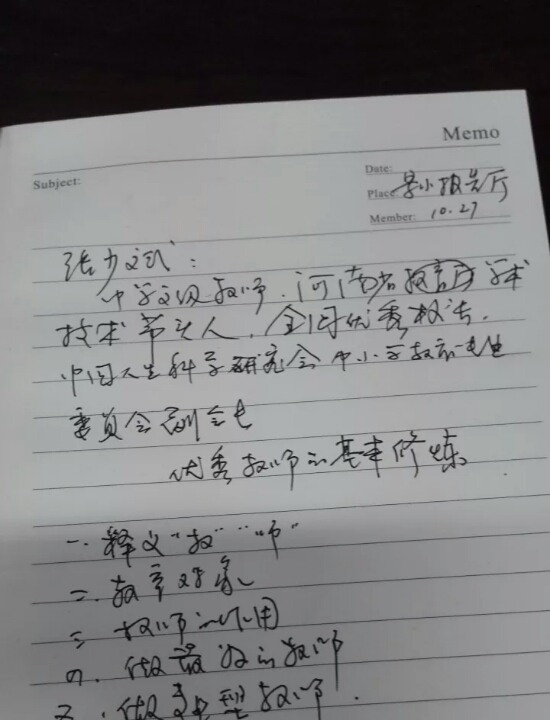 Memo
Subject:
Date:
Place: 县小报告厅
Member: 10.27
张少武:
中学级教师.河南省教育厅学术
技术带头人,全国优秀教
中国人生科学研究会中小学教
委员会副会长
优秀教师的基本修炼
一.释义“教”“师”
二.教育对象
三 教师的作用
四.做最好的教师
五.做型教师.